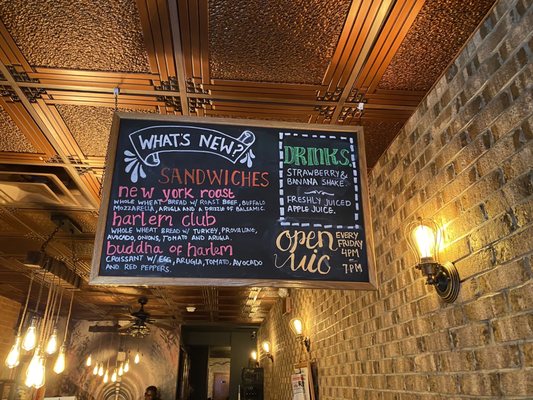 WHAT'S NEW?
SANDWICHES
new york roast
WHOLE WHEAT BREAD W/ ROAST BEEF, BUFFALO
MOZZARELLA, ARUGLA AND A DRIZZLE OF BALSAMIC.
harlem club
WHOLE WHEAT BREAD W/ TURKEY, PROVALONE,
AVOCADO, ONIONS, TOMATO AND ARUGLA.
buddha of harlem
CROISSANT W/ EGG, ARUGLA, TOMATO, AVOCADO
AND RED PEPPERS.
DRINKS
STRAWBERRY &
BANANA SHAKE
FRESHLY JUICED
APPLE JUICE.
open mic
EVERY
FRIDAY
4PM
-
7PM